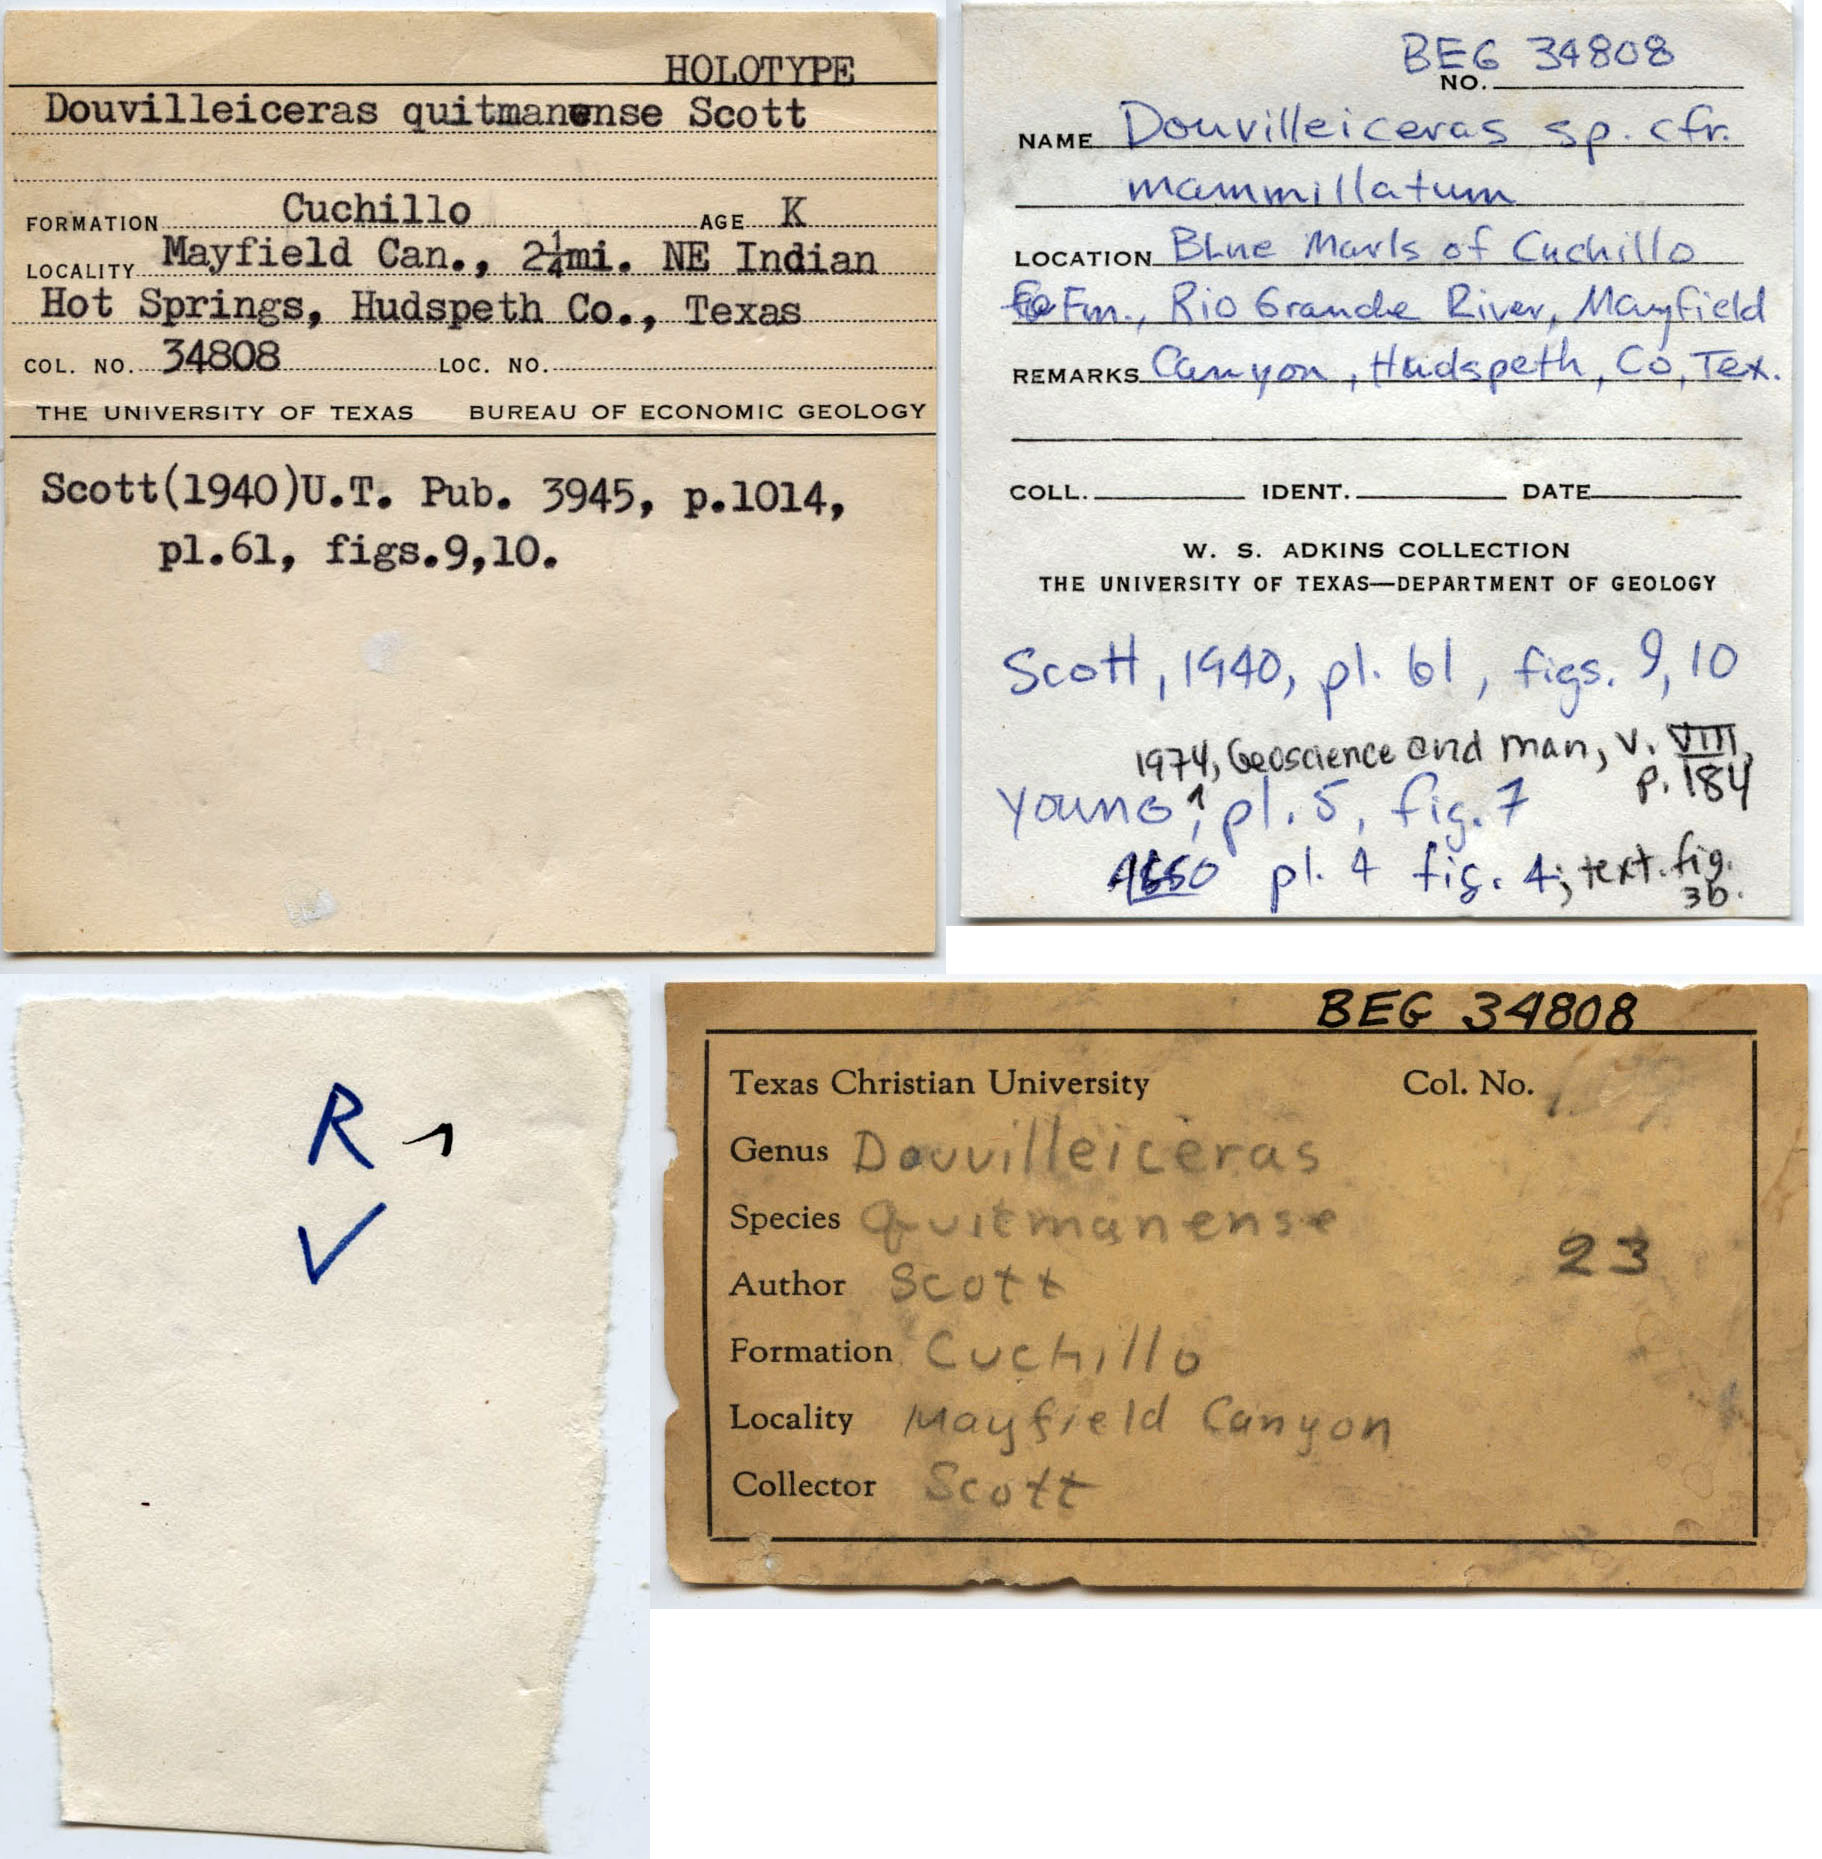 HOLOTYPE
Douvilleiceras quitmanense Scott
FORMATION Cuchillo AGE K
LOCALITY Mayfield Can., 2¼mi. NE Indian
Hot Springs, Hudspeth Co., Texas
COL. NO. 34808 LOC. NO.
THE UNIVERSITY OF TEXAS BUREAU OF ECONOMIC GEOLOGY
Scott(1940)U.T. Pub. 3945, p.1014,
pl.61, figs.9,10.
BEG 34808
NO.
NAME Douvilleiceras sp. cfr.
mammillatum
LOCATION Blue Marls of Cuchillo
Fm., Rio Grande River, Mayfield
REMARKS Canyon, Hudspeth, Co, Tex.
COLL. IDENT. DATE
W. S. ADKINS COLLECTION
THE UNIVERSITY OF TEXAS—DEPARTMENT OF GEOLOGY
Scott, 1940, pl. 61, figs. 9, 10
1974, Geoscience and Man, v. VIII,
p. 184
Young, pl. 5, fig. 7
pl. 4 fig. 4; text. fig.
3b.
R 1
✓
BEG 34808
Texas Christian University Col. No.
Genus Douvilleiceras
Species Quitmanense
23
Author Scott
Formation Cuchillo
Locality Mayfield Canyon
Collector Scott